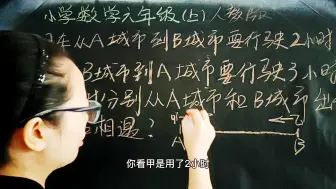 小学数学六年级(上)人教版
车从A城市到B城市要行驶2小时
B城市到A城市要行驶3小时
时分别从A城市和B城市出
相遇?
甲
A
B
你看甲是用了2小时